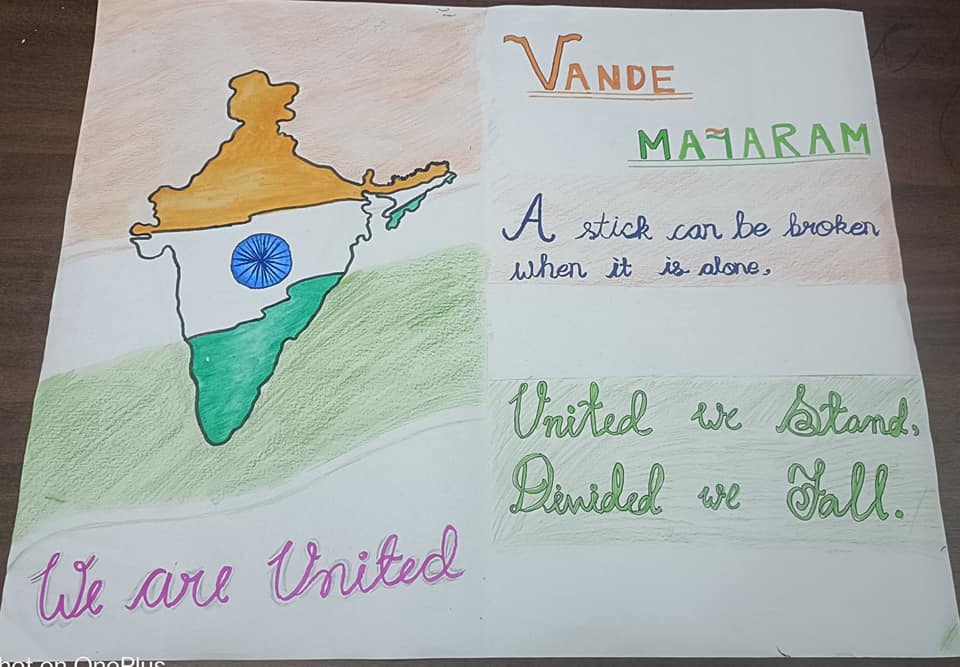 VANDE
MATARAM
A stick can be broken
when it is alone,
United we Stand,
Divided we Fall.
We are United
Shot on OnePlus